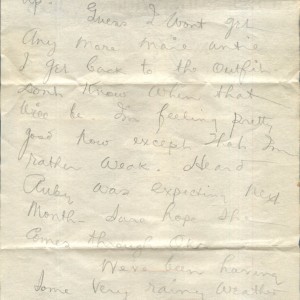 up.
Guess I Wont get
Any more mail until
I get back to the Outfit
Dont Know When that
Will be. I'm feeling pretty
good now except that I'm
rather Weak. Heard
Ruby was expecting next
Month. Sure hope she
Comes through Oke.
Were been having
Some Very rainy Weather